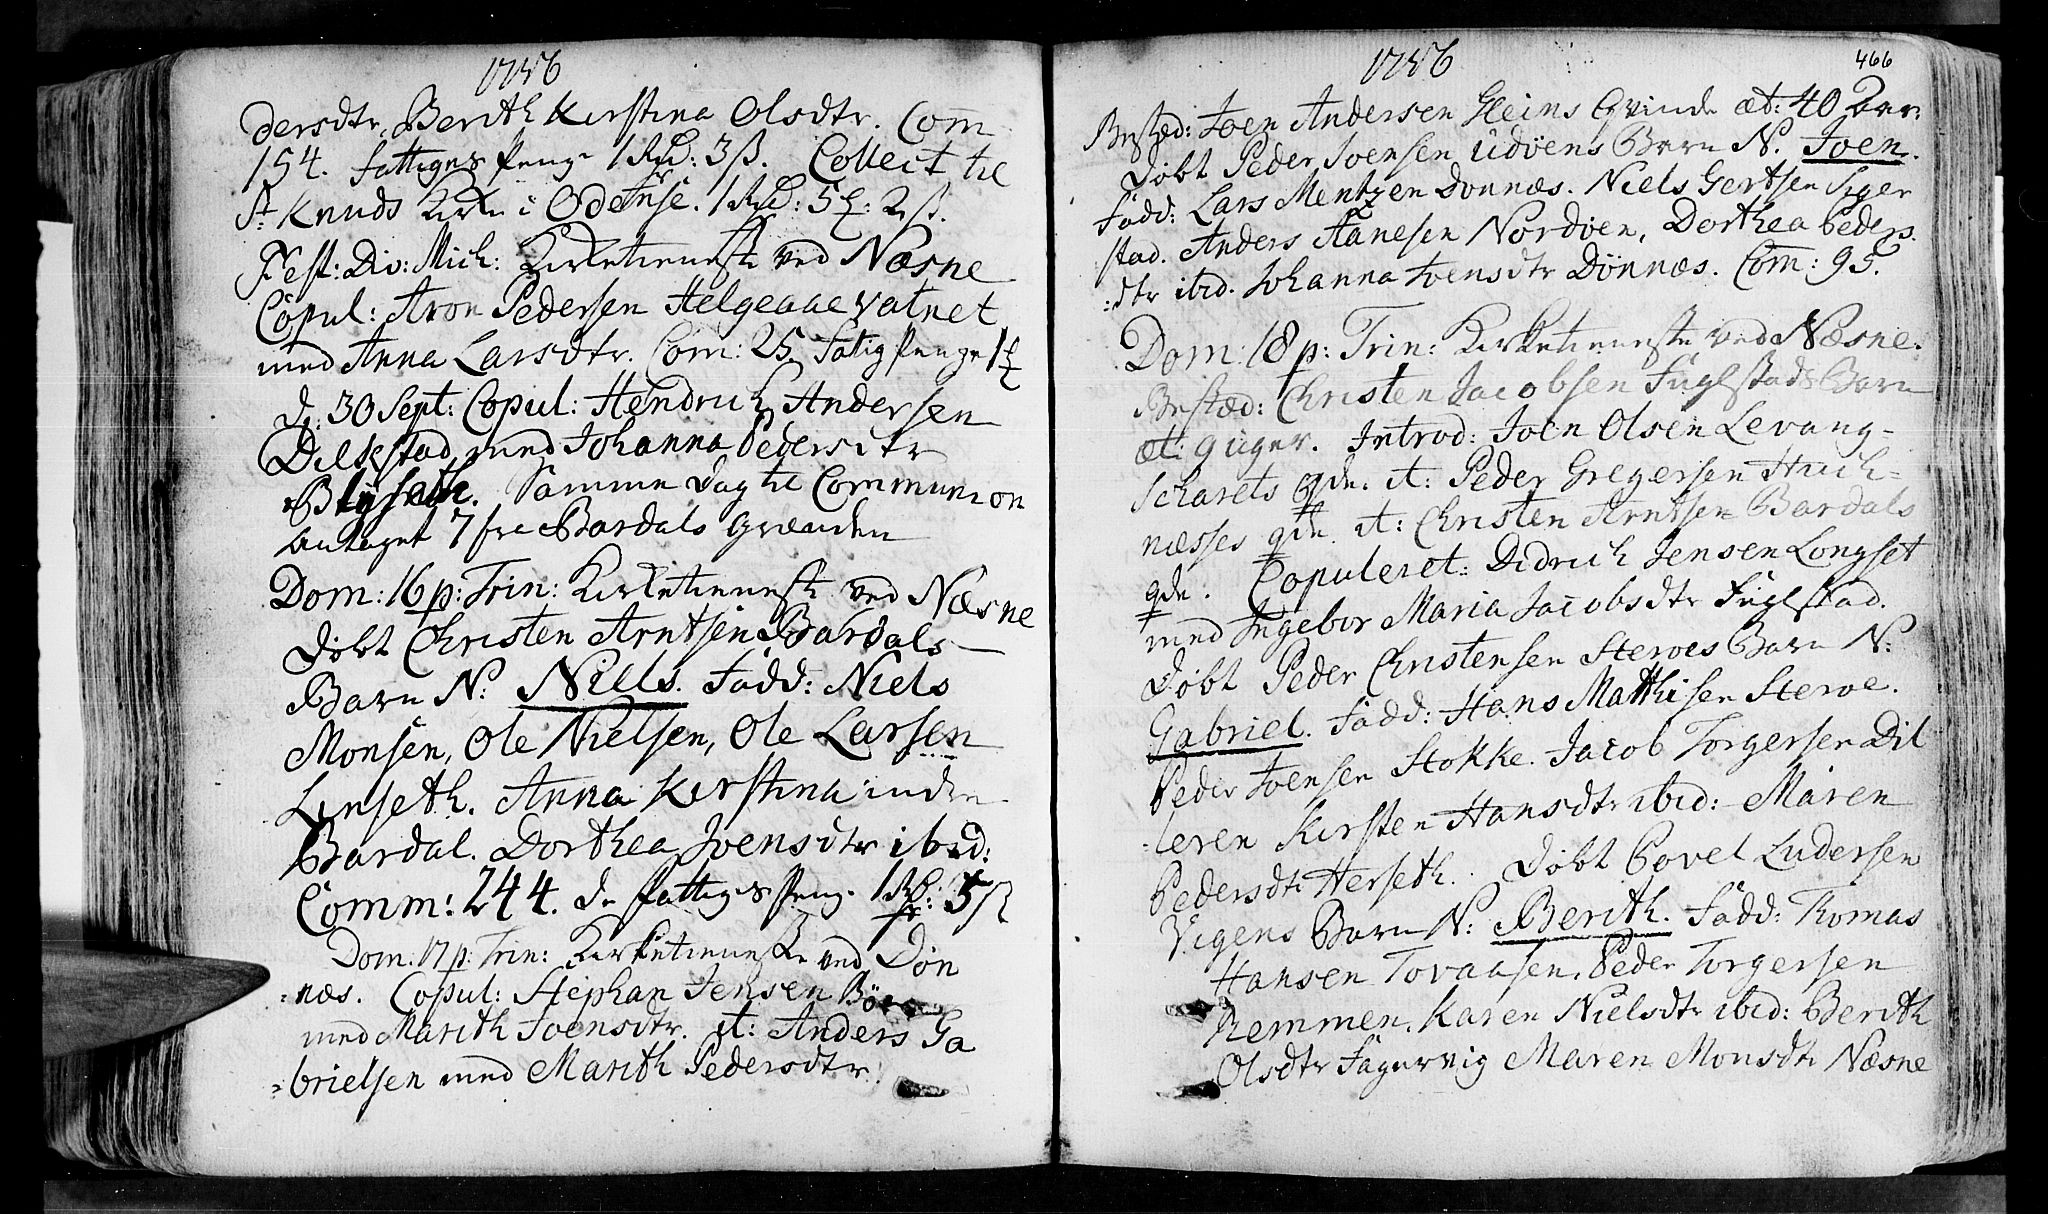 1756
dersdtr, Berith Kirstina Olsdtr. Com
154. fattiges Peng 1 Rd: 3 ß. Collect til
St. Knuds Kirke i Odense. 1 Rd: 5 ¥: 2 ß.
Fest: Div: Mich: Kirketieneste ved Næsne
Copul: Aron Pedersen Helgeaae vatnet
med Anna Larsdtr. Com: 25. Fatig Penge 1 ¥
d. 30 Sept: Copul: Hendrich Andersen
Dilkestad med Johanna Pedersdtr
Samme Dag til Communion
antaget 7 fra Bardals Grænden
Dom: 16 p: Trin: Kirketieneste ved Næsne
Døbt Christen Arntsen Bardals
Barn N: Niells. Fadd: Niels
Monsen, Ole Nielsen, Ole Larsen
Linseth. Anna Kirstina indre
Bardal. Dorthea Joensdtr ibid:
Comm: 244. de fattiges Peng. 1 Rd: 5 ß
Dom. 17 p: Trin: Kirketieneste ved Døn
=næs. Copul: Stephan Jensen
med Marith Joensdtr. it: Anders Ga
=brielsen med Marith Pedersdtr.
1756
466
Bested: Joen Andersen Gleins Qvinde æt: 40 Aar:
Døbt Peder Joensen Udøens Barn N. Joen.
Fadd: Lars Mentzen Donnæs. Niels Gertsen Siger
stad. Anders Aanesen Nordøen, Dorthea Peders
:dtr ibid. Johanna Joensdtr Dønnæs. Com: 95.
Dom: 18 p: Trin: Kirketieneste ved Næsne.
Bested: Christen Jacobsen Fuglstads Barn
æt: 9 uger. Introd: Joen Olsen Levang-
Scharets qde. it: Peder Gregersen Huch=
næsses qde. it: Christen Arntsen Bardals
qde. Copuleret: Didrich Jensen Longset
med Ingebor Maria Jacobsdtr Fuglstad.
Døbt Peder Christensen Steroes Barn N:
Gabriel. Fadd: Hans Matthisen Steroe.
Peder Joensen Stokke. Jacob Torgersen Dil
leren Kirsten Hansdtr ibid: Maren
Pedersdtr Herseth. Døbt Povel Ludersen
Vigens Barn N: Berith. Fadd: Thomas
Hansen Tovaasen. Peder Torgersen
Remmen. Karen Nielsdtr ibid: Berith
Olsdtr Fagervig Maren Monsdtr Næsne